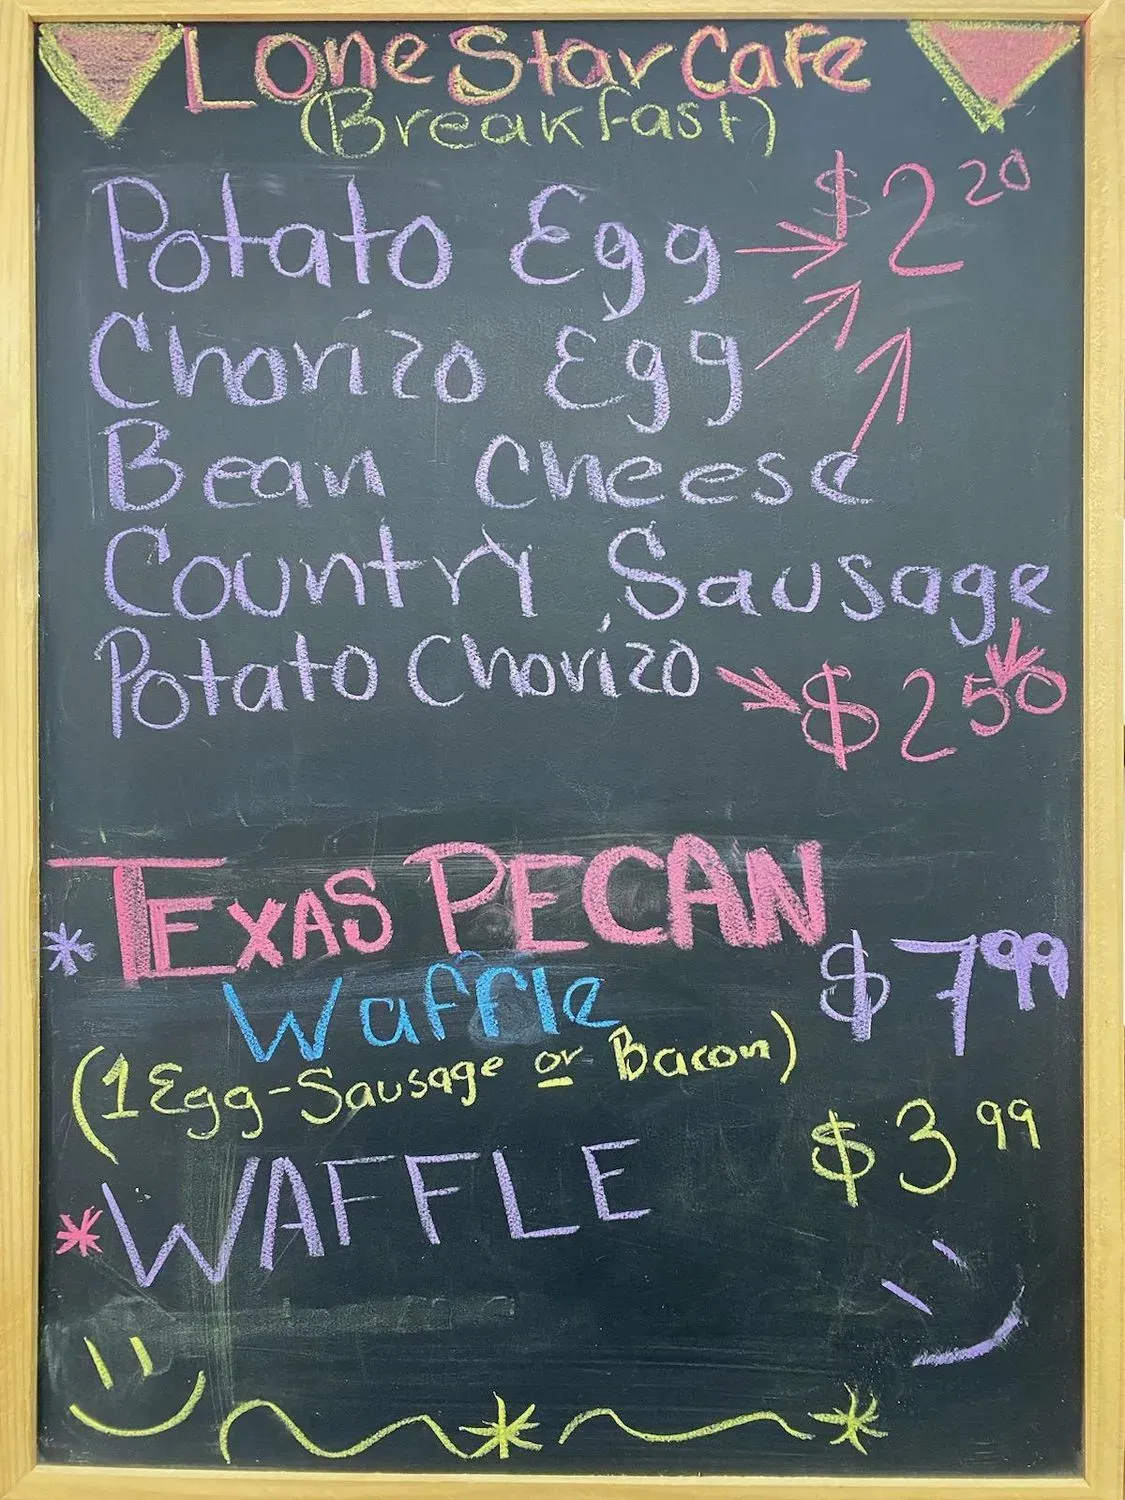 Lone Star Cafe
(Breakfast)
Potato Egg $2 20
Chorizo Egg
Bean Cheese
Country Sausage
Potato Chorizo $2 50
TEXAS PECAN
Waffle $7 99
(1 Egg-Sausage or Bacon)
WAFFLE $3 99